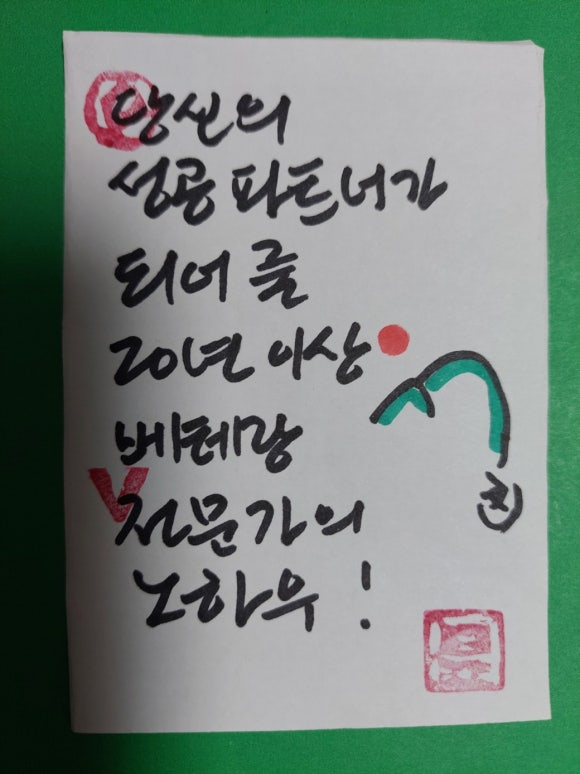 당신의
성공 파트너가
되어 줄
20년 이상
베테랑
전문가의
노하우!